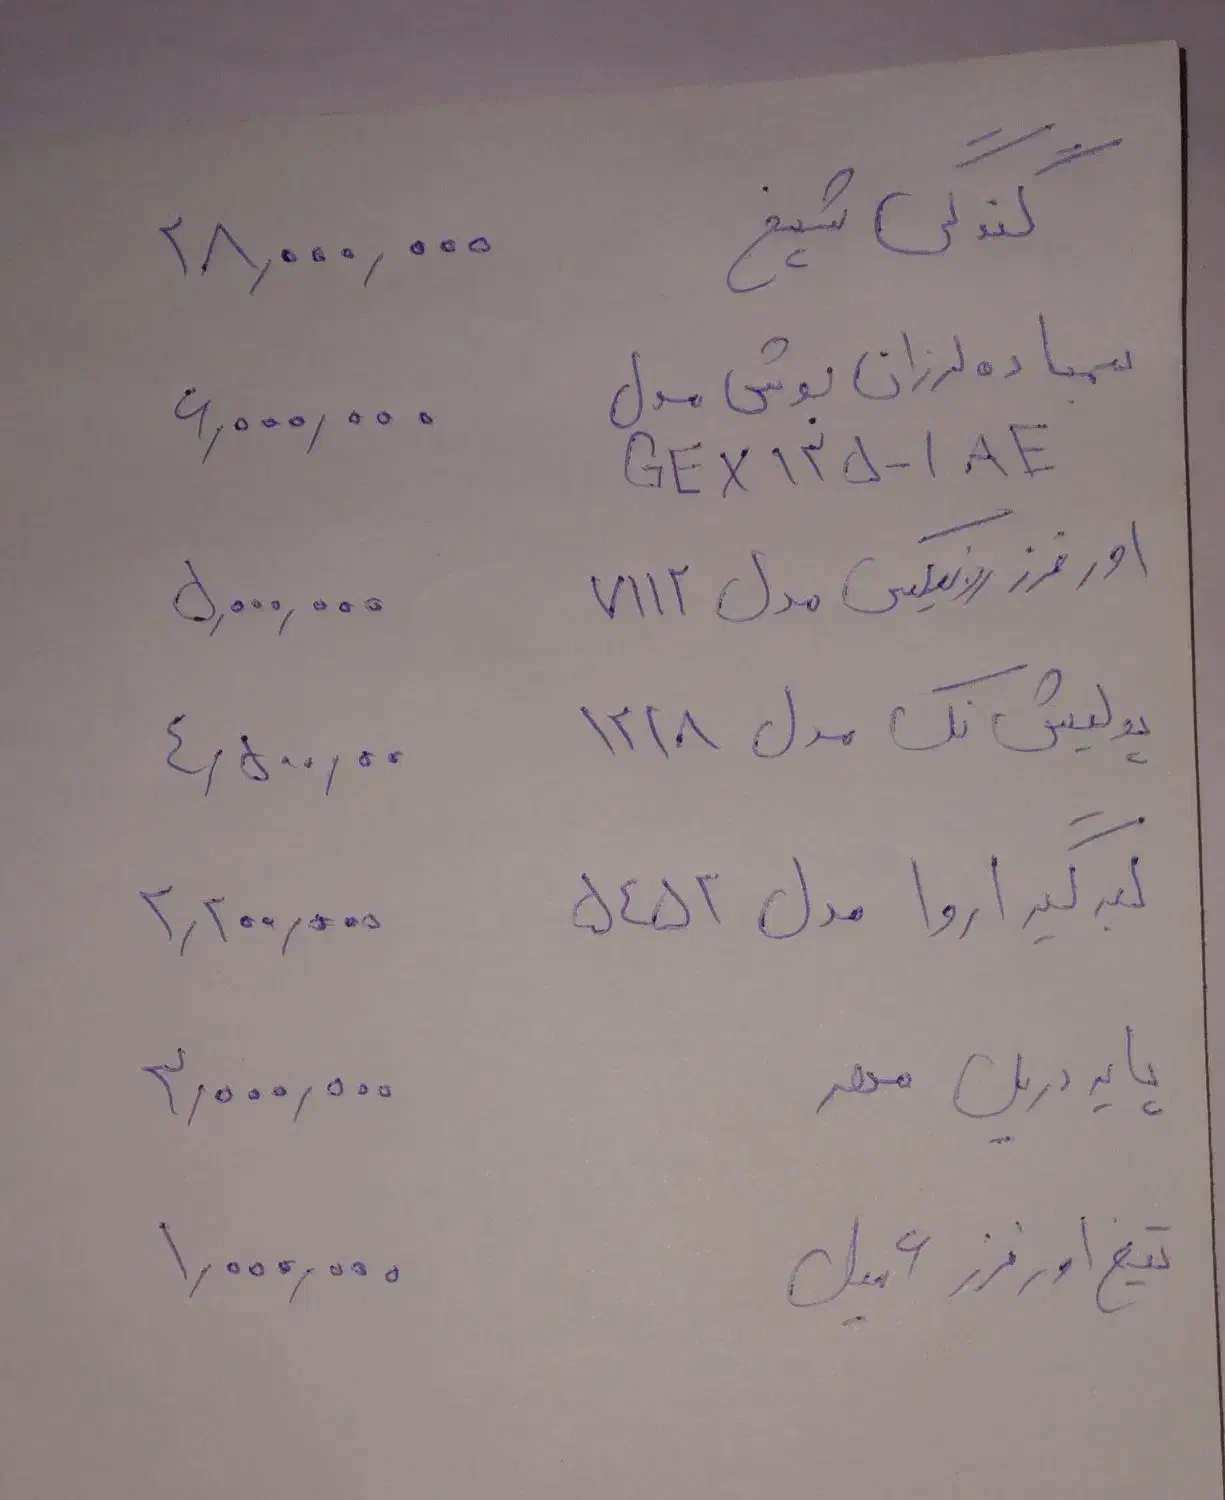 گندگی شیخ ۲۸,۰۰۰,۰۰۰
سمباده لرزان بوش مدل ۶,۰۰۰,۰۰۰
GEX ۱۲۵-۱ AE
اور فرز رونیکس مدل ۷۱۱۲ ۵,۰۰۰,۰۰۰
پولیش نک مدل ۱۲۲۸ ۴,۵۰۰,۰۰
لبه گیر اروا مدل ۵۴۵۲ ۲,۲۰۰,۰۰۰
پایه دریل ۳,۰۰۰,۰۰۰
تیغ اور فرز ۶ میل ۱,۰۰۰,۰۰۰